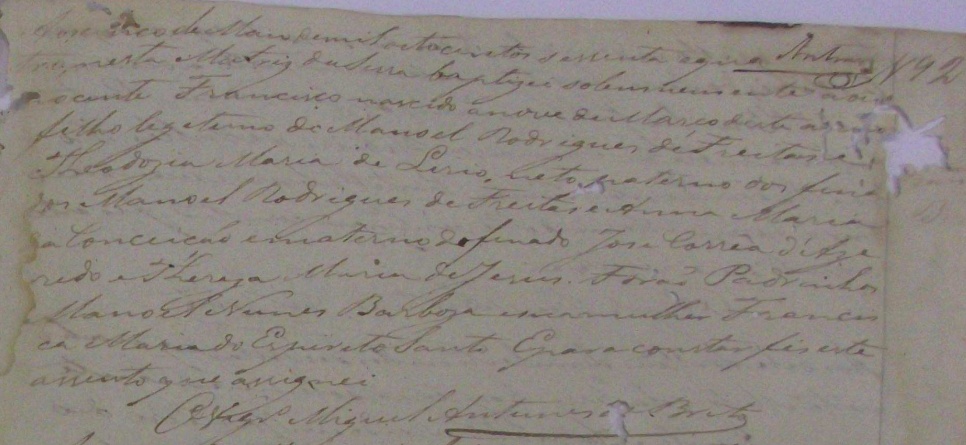 Aos cinco de Maio de mil oito centos sessenta e
nesta Matriz da Serra baptizei solemnemente ao in
nocente Francisco nascido a nove de Março deste anno
filho legitimo de Manoel Rodrigues de Freitas e
Theodozia Maria de Lirio, neto paterno dos fina
dos Manoel Rodrigues de Freitas e Anna Maria
da Conceição e materno do finado José Corrêa d'Aze
redo e Thereza Maria de Jesus. Forão Padrinhos
Manoel Nunes Barboza e sua mulher Francis
ca Maria do Espirito Santo E para constar fis este
assento que assignei
Miguel Antunes de Brito
192